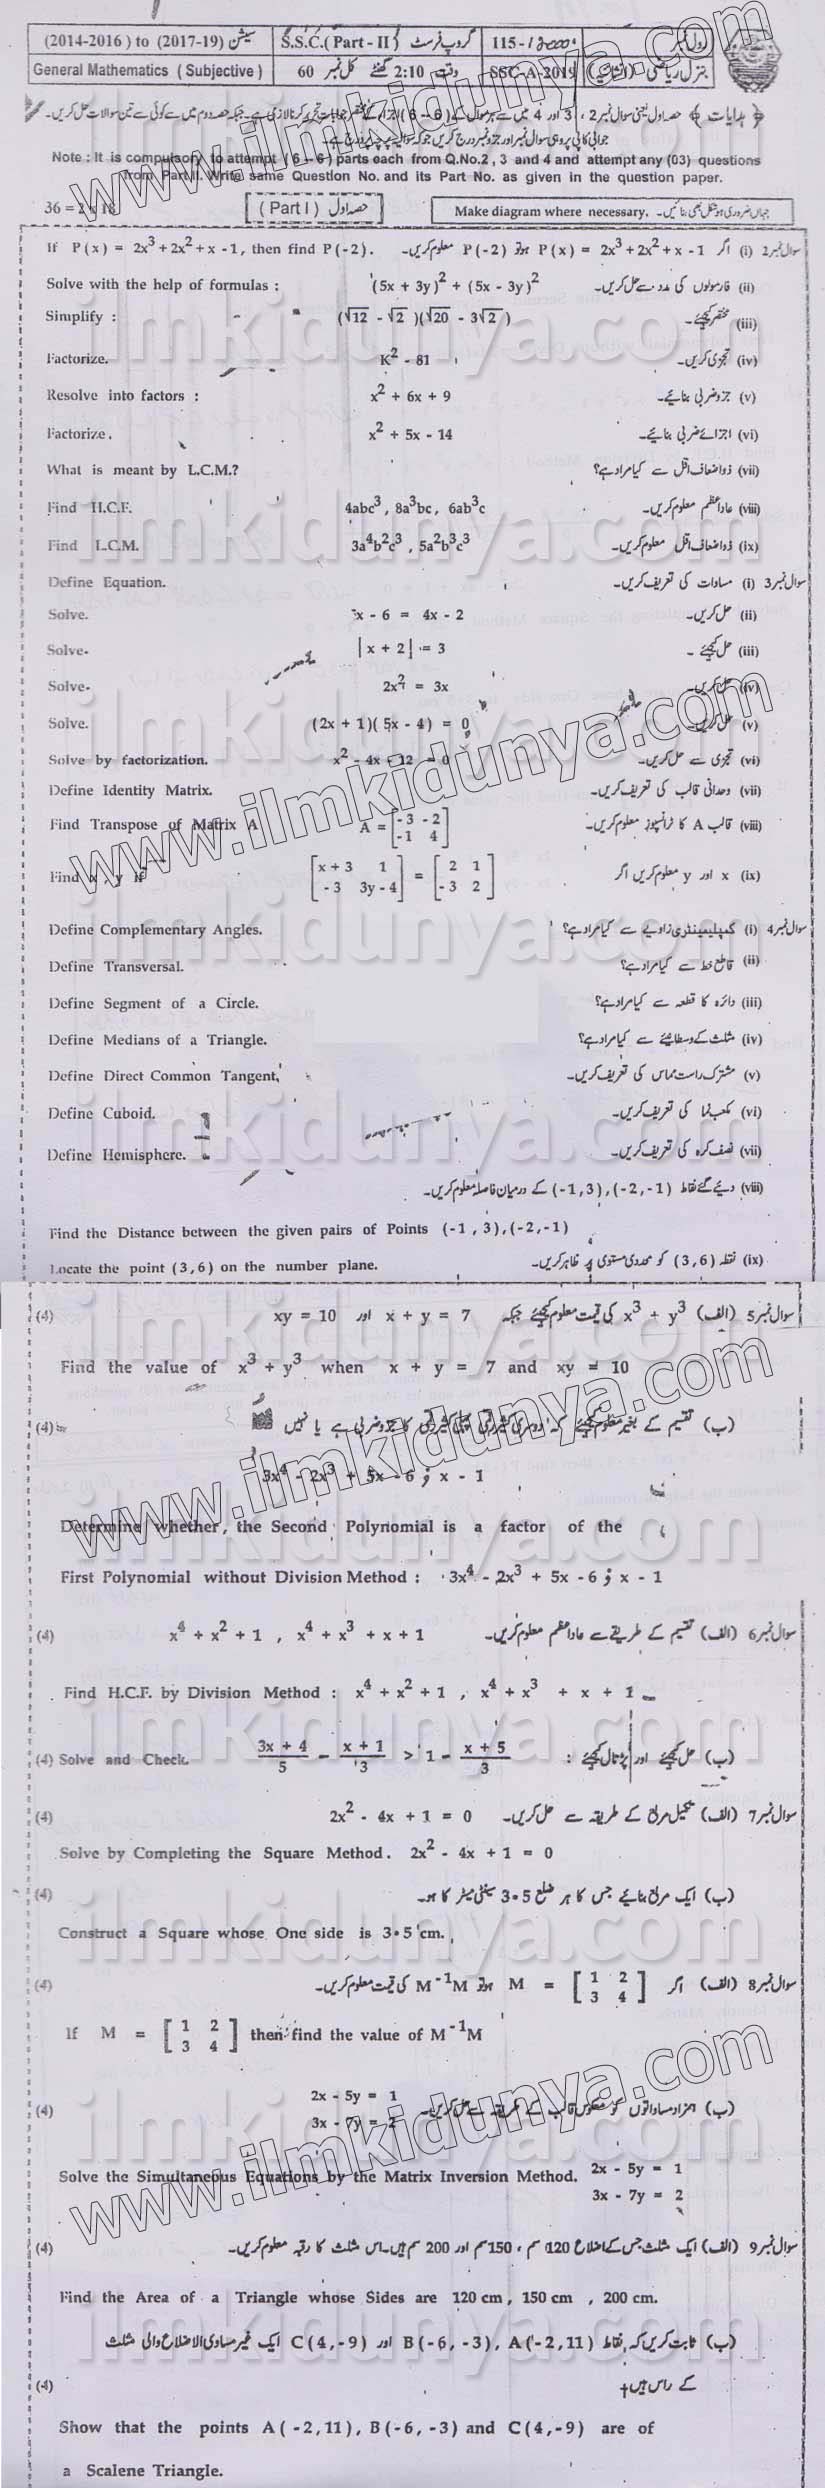 سیشن (2014-2016) to (2017-19) گروپ فرسٹ S.S.C.( Part - II ) 115- رول نمبر
General Mathematics ( Subjective ) کل نمبر 60 وقت 2:10 گھنٹے SSC-A-2019 جنرل ریاضی (انشائیہ)
جوابی کاپی پر وہی سوال نمبر اور جزو نمبر درج کریں جو کہ سوالیہ پرچہ پر درج ہے۔
Note : It is compulsory to attempt ( 6 – 6 ) parts each from Q.No.2 , 3 and 4 and attempt any (03) questions
from Part II. Write same Question No. and its Part No. as given in the question paper.
36 = 2 x 18 ( Part I ) حصہ اول Make diagram where necessary. جہاں ضروری ہو شکل بھی بنائیں۔
If P ( x ) = 2x³ + 2x² + x - 1 , then find P ( -2 ) . سوال نمبر 2 (i) اگر P ( x ) = 2x³ + 2x² + x - 1 ہو تو P ( -2 ) معلوم کریں۔
Solve with the help of formulas : (5x + 3y)² + (5x - 3y)² (ii) فارمولوں کی مدد سے حل کریں۔
Simplify : (√12 - √2 )(√20 - 3√2 ) (iii) مختصر کیجئے۔
Factorize. K² - 81 (iv) تجزی کریں۔
Resolve into factors : x² + 6x + 9 (v) جزو ضربی بنائیے۔
Factorize . x² + 5x - 14 (vi) اجزائے ضربی بنائیے۔
What is meant by L.C.M.? (vii) ذواضعاف اقل سے کیا مراد ہے؟
Find H.C.F. 4abc³ , 8a³bc , 6ab³c (viii) عاد اعظم معلوم کریں۔
Find L.C.M. 3a⁴b²c³ , 5a²b³c³ (ix) ذواضعاف اقل معلوم کریں۔
Define Equation. سوال نمبر 3 (i) مساوات کی تعریف کریں۔
Solve. x - 6 = 4x - 2 (ii) حل کریں۔
Solve. | x + 2 | = 3 (iii) حل کیجئے ۔
Solve. 2x² = 3x (iv) حل کریں۔
Solve. (2x + 1)( 5x - 4) = 0 (v) حل کریں۔
Solve by factorization. x² - 4x - 12 = 0 (vi) تجزی سے حل کریں۔
Define Identity Matrix. (vii) وحدانی قالب کی تعریف کریں۔
Find Transpose of Matrix A A = [ -3 -2 ; -1 4 ] (viii) قالب A کا ٹرانسپوز معلوم کریں۔
Find x , y if [ x + 3 1 ; -3 3y - 4 ] = [ 2 1 ; -3 2 ] (ix) x اور y معلوم کریں اگر
Define Complementary Angles. سوال نمبر 4 (i) کمپلیمینٹری زاویے سے کیا مراد ہے؟
Define Transversal. (ii) قاطع خط سے کیا مراد ہے؟
Define Segment of a Circle. (iii) دائرہ کا قطعہ سے کیا مراد ہے؟
Define Medians of a Triangle. (iv) مثلث کے وسطانیئے سے کیا مراد ہے؟
Define Direct Common Tangent. (v) مشترک راست مماس کی تعریف کریں۔
Define Cuboid. (vi) مکعب نما کی تعریف کریں۔
Define Hemisphere. (vii) نصف کرہ کی تعریف کریں۔
(viii) دیئے گئے نقاط (-1 , 3) , (-2 , -1) کے درمیان فاصلہ معلوم کریں۔
Find the Distance between the given pairs of Points (-1 , 3) , (-2 , -1)
Locate the point (3 , 6) on the number plane. (ix) نقطہ (3 , 6) کو محددی مستوی پر ظاہر کریں۔
(4) سوال نمبر 5 (الف) x³ + y³ کی قیمت معلوم کیجئے جبکہ x + y = 7 اور xy = 10
Find the value of x³ + y³ when x + y = 7 and xy = 10
(4) (ب) تقسیم کے بغیر معلوم کیجئے کہ دوسری کثیر رقمی پہلی کثیر رقمی کا جزو ضربی ہے یا نہیں
3x⁴ - 2x³ + 5x - 6 ; x - 1
Determine whether, the Second Polynomial is a factor of the
First Polynomial without Division Method : 3x⁴ - 2x³ + 5x - 6 ; x - 1
(4) x⁴ + x² + 1 , x⁴ + x³ + x + 1 سوال نمبر 6 (الف) تقسیم کے طریقے سے عاد اعظم معلوم کریں۔
Find H.C.F. by Division Method : x⁴ + x² + 1 , x⁴ + x³ + x + 1
(4) Solve and Check. (3x + 4)/5 - (x + 1)/3 > 1 - (x + 5)/3 (ب) حل کیجئے اور پڑتال کیجئے :
(4) 2x² - 4x + 1 = 0 سوال نمبر 7 (الف) تکمیل مربع کے طریقہ سے حل کریں۔
Solve by Completing the Square Method . 2x² - 4x + 1 = 0
(4) (ب) ایک مربع بنائیے جس کا ہر ضلع 3.5 سینٹی میٹر کا ہو۔
Construct a Square whose One side is 3.5 cm.
(4) سوال نمبر 8 (الف) اگر M = [ 1 2 ; 3 4 ] ہو تو M⁻¹M کی قیمت معلوم کریں۔
If M = [ 1 2 ; 3 4 ] then find the value of M⁻¹M
(4) 2x - 5y = 1 (ب) ہمزاد مساواتوں کو معکوس قالب کے طریقہ سے حل کریں۔
3x - 7y = 2
Solve the Simultaneous Equations by the Matrix Inversion Method. 2x - 5y = 1
3x - 7y = 2
(4) سوال نمبر 9 (الف) ایک مثلث جس کے اضلاع 120 سم ، 150 سم اور 200 سم ہیں۔ اس مثلث کا رقبہ معلوم کریں۔
Find the Area of a Triangle whose Sides are 120 cm , 150 cm , 200 cm.
(ب) ثابت کریں کہ نقاط A ( -2 , 11 ) , B ( -6 , -3 ) اور C ( 4 , -9 ) ایک غیر مساوی الاضلاع والی مثلث
(4) کے راس ہیں۔
Show that the points A ( -2 , 11 ) , B ( -6 , -3 ) and C ( 4 , -9 ) are of
a Scalene Triangle.
www.ilmkidunya.com
www.ilmkidunya.com
www.ilmkidunya.com
www.ilmkidunya.com